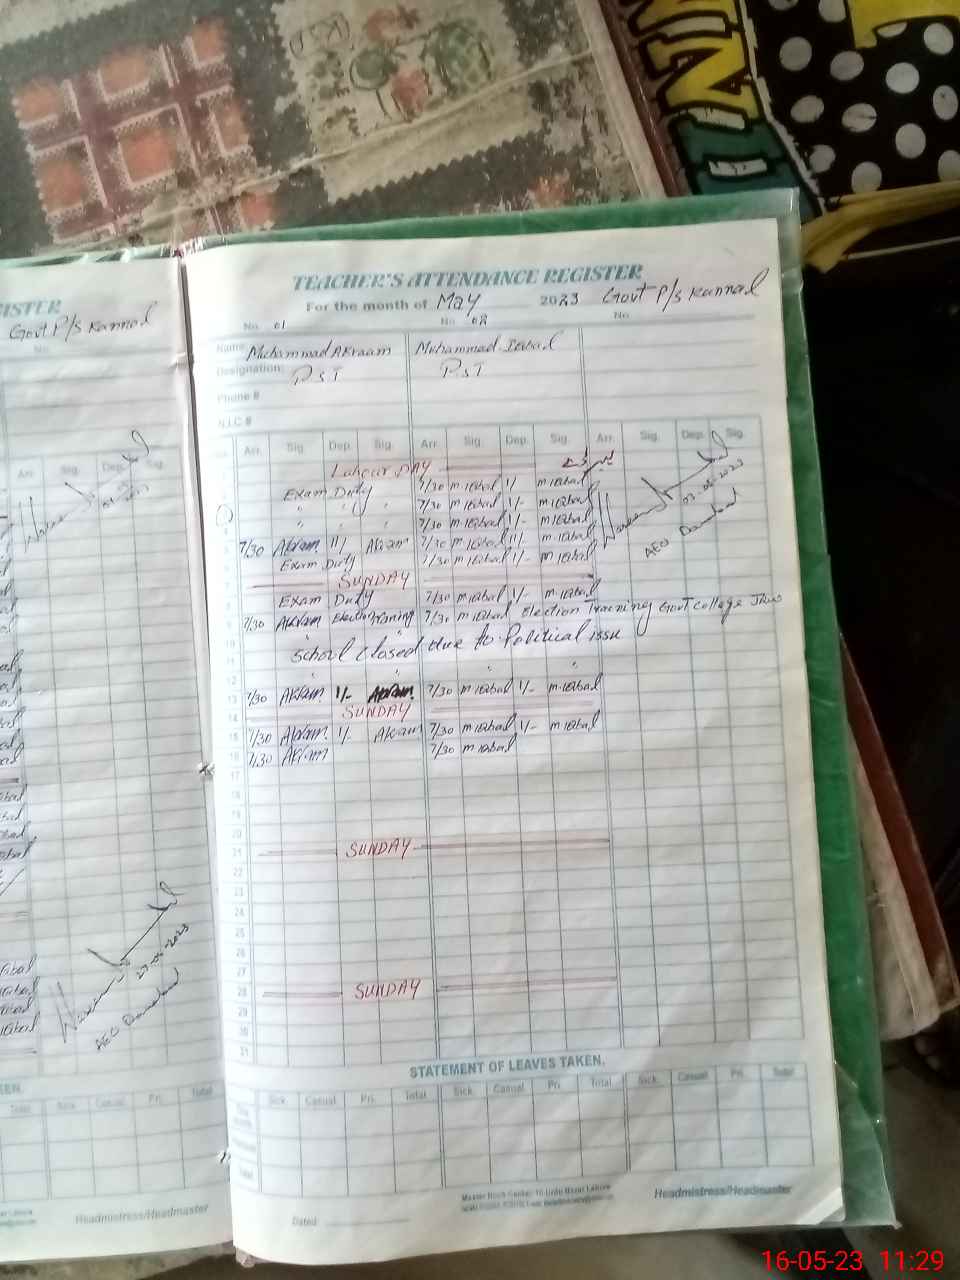 TEACHER'S ATTENDANCE REGISTER
For the month of May 2023 Govt P/S Kannad
No. 01 No. 02 No.
Name: Muhammad Akraam Muhammad Iqbal
Designation: P.S.T P.S.T
Phone #
N.I.C #
Arr. Sig. Dep. Sig. Arr. Sig. Dep. Sig. Arr. Sig. Dep. Sig.
Labour DAY
Exam Duty 7/30 M Iqbal 1/- M Iqbal
" " " 7/30 M Iqbal 1/- M Iqbal
" " " 7/30 M Iqbal 1/- M Iqbal
7/30 Akram 11/- Akram 7/30 M Iqbal 11/- M Iqbal
Exam Duty 7/30 M Iqbal 1/- M Iqbal
7 SUNDAY
Exam Duty 7/30 M Iqbal 1/- M Iqbal
9 7/30 Akram Election Training 7/30 M Iqbal Election Training Govt College
10 School closed due to Political issue
11 " "
12
13 7/30 Akram 1/- Akram 7/30 M Iqbal 1/- M Iqbal
14 SUNDAY
15 7/30 Akram 1/- Akram 7/30 M Iqbal 1/- M Iqbal
16 7/30 Akram 7/30 M Iqbal
17
18
19
20
21 SUNDAY
22
23
24
25
26
27
28 SUNDAY
29
30
31
03-05-2023
AEO
STATEMENT OF LEAVES TAKEN.
Sick. Casual. Pri. Total Sick. Casual. Pri. Total Sick. Casual Pri. Total
Total
Dated:
Headmistress/Headmaster
ISTER
Govt P/S Kannad
No.
Arr. Sig. Dep. Sig.
AEO
Total Sick. Casual. Pri. Total
Headmistress/Headmaster
16-05-23 11:29